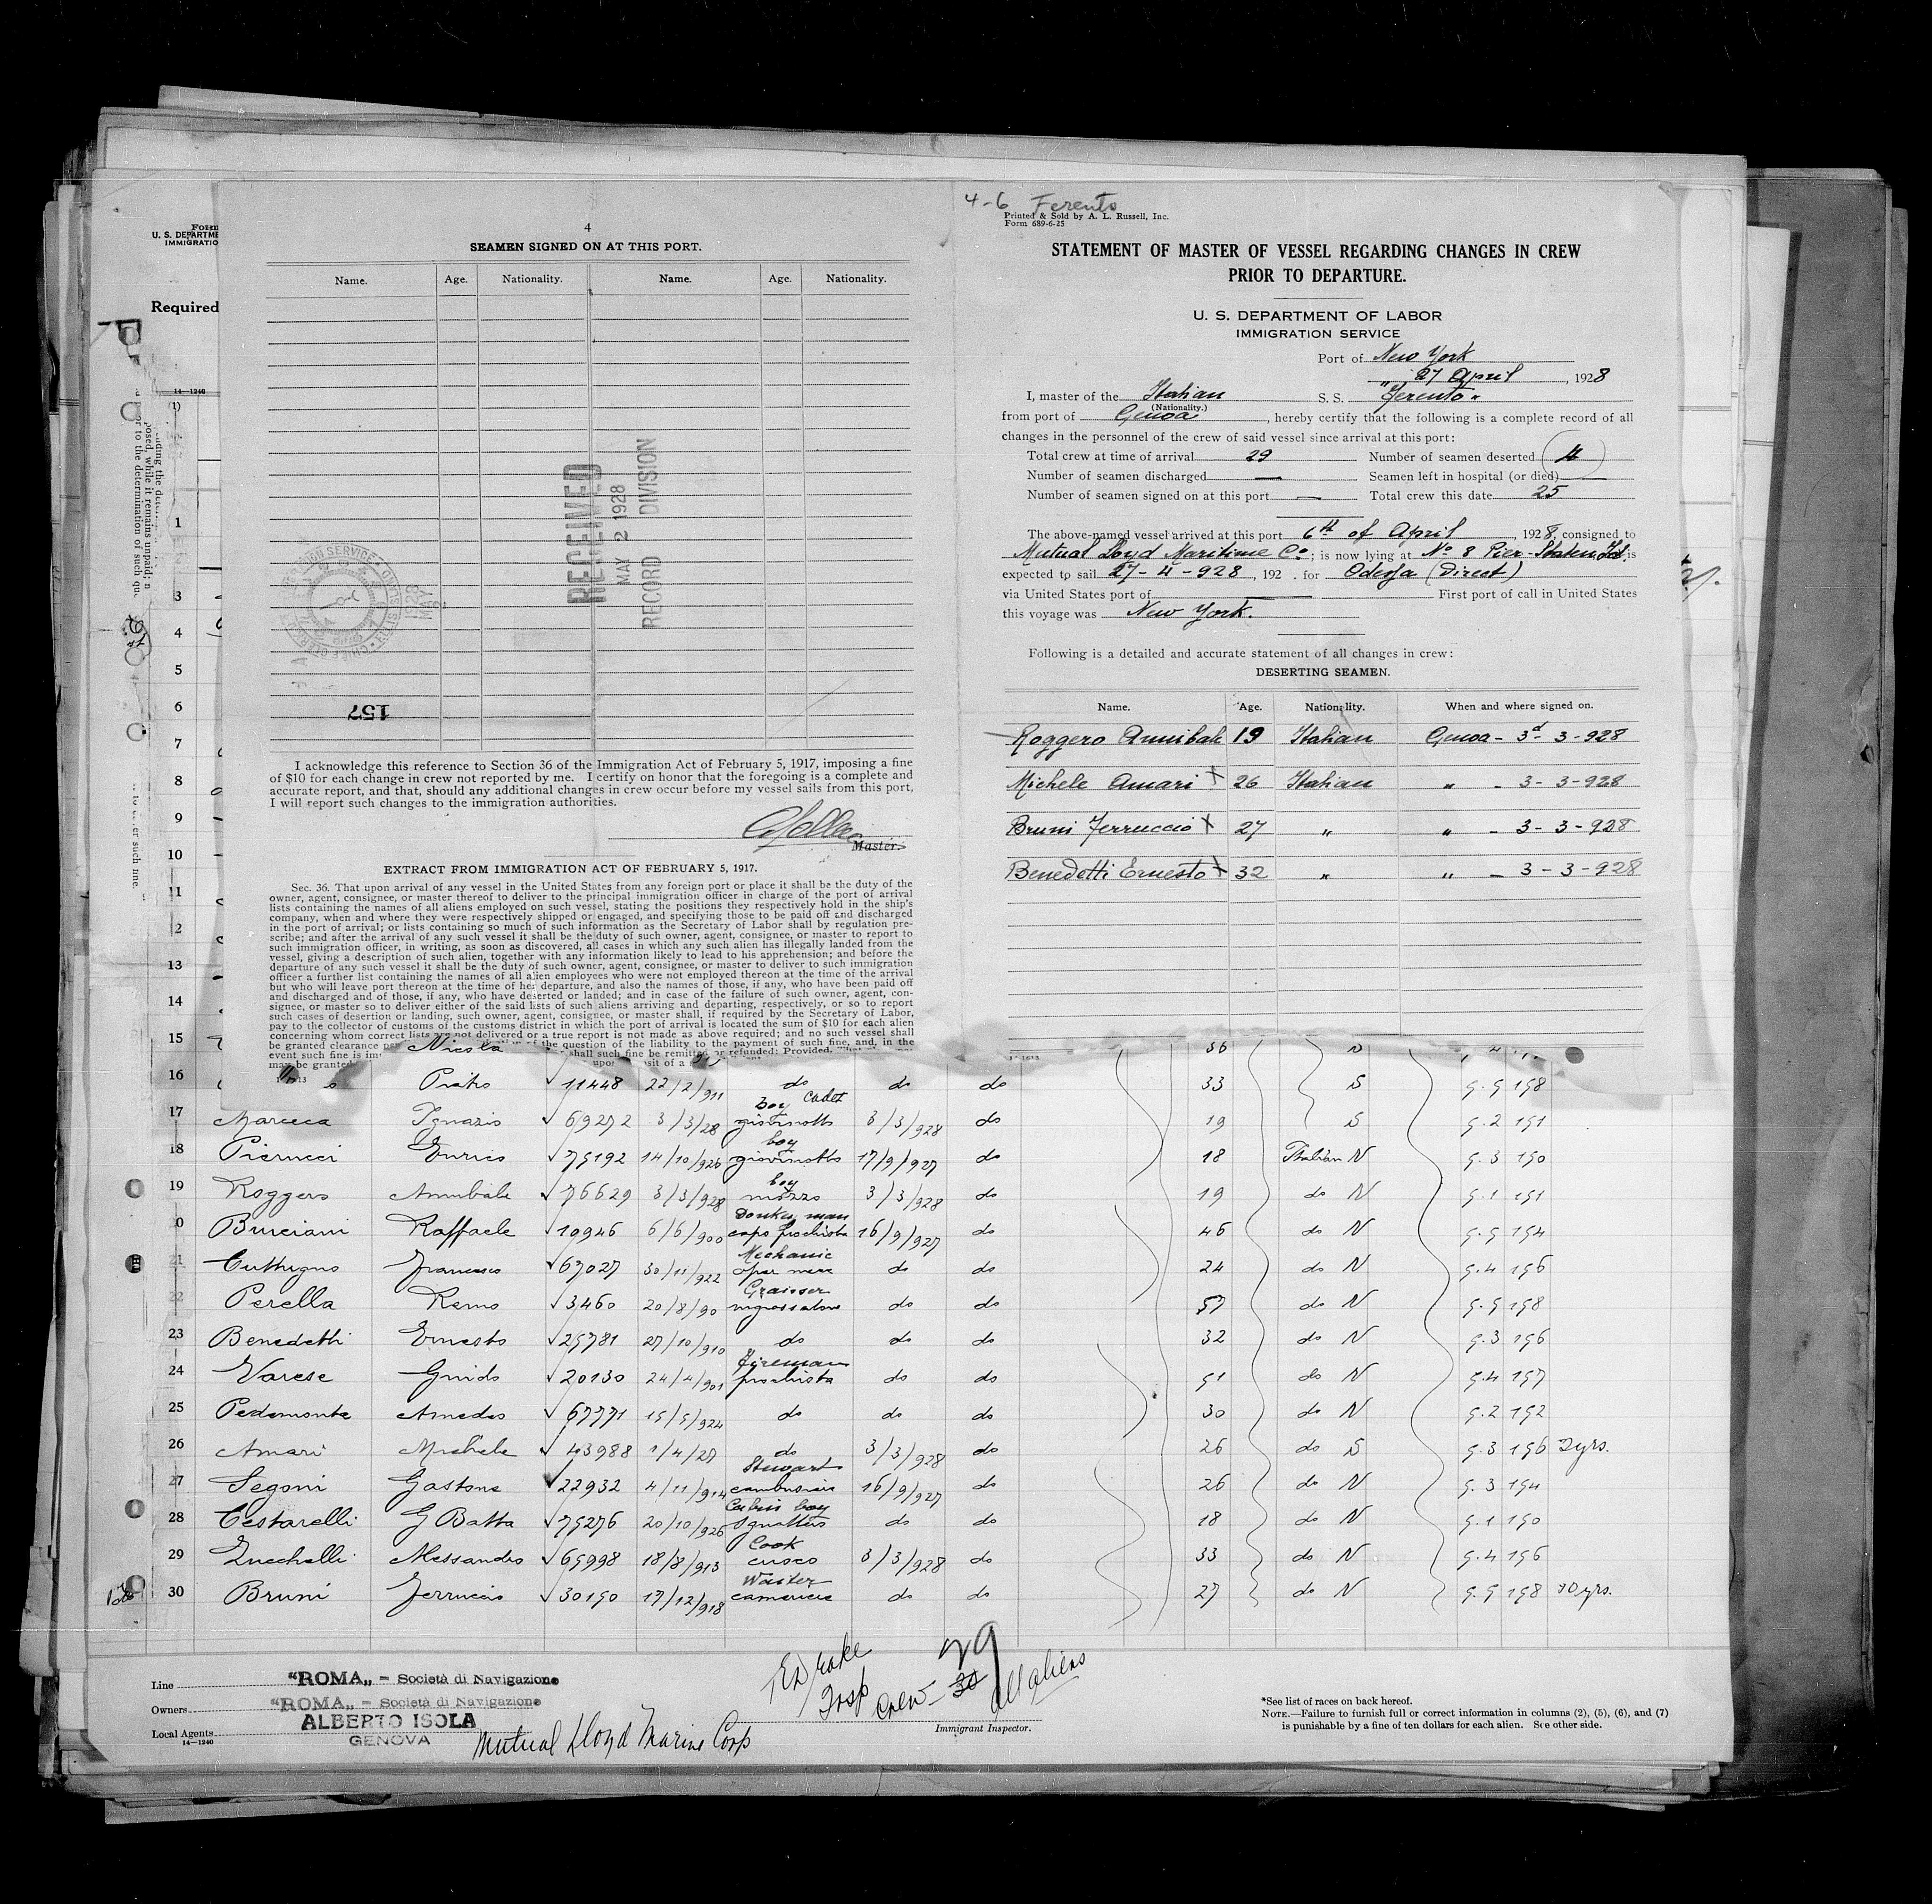 4-6 Ferento
Printed & Sold by A. L. Russell, Inc.
Form 689-6-25
STATEMENT OF MASTER OF VESSEL REGARDING CHANGES IN CREW
PRIOR TO DEPARTURE.
U. S. DEPARTMENT OF LABOR
IMMIGRATION SERVICE
Port of New York
27 April, 1928
I, master of the Italian S. S. "Ferento"
(Nationality.)
from port of Genoa, hereby certify that the following is a complete record of all
changes in the personnel of the crew of said vessel since arrival at this port:
Total crew at time of arrival 29 Number of seamen deserted 4
Number of seamen discharged — Seamen left in hospital (or died) —
Number of seamen signed on at this port — Total crew this date 25
The above-named vessel arrived at this port 6th of April, 1928, consigned to
Mutual Lloyd Maritime Co.; is now lying at No 8 Pier-Staten Isl. is
expected to sail 27-4-928, 192 . for Odessa (Direct)
via United States port of — First port of call in United States
this voyage was New York.
Following is a detailed and accurate statement of all changes in crew:
DESERTING SEAMEN.
Name. Age. Nationality. When and where signed on.
Roggero Annibale 19 Italian Genoa - 3d- 3-928
Michele Amari x 26 Italian " - 3-3-928
Bruni Ferruccio x 27 " " - 3-3-928
Benedetti Ernesto x 32 " " - 3-3-928
4
SEAMEN SIGNED ON AT THIS PORT.
Name. Age. Nationality. Name. Age. Nationality.
RECEIVED
MAY 2 1928
RECORD DIVISION
157
I acknowledge this reference to Section 36 of the Immigration Act of February 5, 1917, imposing a fine
of $10 for each change in crew not reported by me. I certify on honor that the foregoing is a complete and
accurate report, and that, should any additional changes in crew occur before my vessel sails from this port,
I will report such changes to the immigration authorities.
Master.
EXTRACT FROM IMMIGRATION ACT OF FEBRUARY 5, 1917.
Sec. 36. That upon arrival of any vessel in the United States from any foreign port or place it shall be the duty of the
owner, agent, consignee, or master thereof to deliver to the principal immigration officer in charge of the port of arrival
lists containing the names of all aliens employed on such vessel, stating the positions they respectively hold in the ship's
company, when and where they were respectively shipped or engaged, and specifying those to be paid off and discharged
in the port of arrival; or lists containing so much of such information as the Secretary of Labor shall by regulation pre-
scribe; and after the arrival of any such vessel it shall be the duty of such owner, agent, consignee, or master to report to
such immigration officer, in writing, as soon as discovered, all cases in which any such alien has illegally landed from the
vessel, giving a description of such alien, together with any information likely to lead to his apprehension; and before the
departure of any such vessel it shall be the duty of such owner, agent, consignee, or master to deliver to such immigration
officer a further list containing the names of all alien employees who were not employed thereon at the time of the arrival
but who will leave port thereon at the time of her departure, and also the names of those, if any, who have been paid off
and discharged and of those, if any, who have deserted or landed; and in case of the failure of such owner, agent, con-
signee, or master so to deliver either of the said lists of such aliens arriving and departing, respectively, or so to report
such cases of desertion or landing, such owner, agent, consignee, or master shall, if required by the Secretary of Labor,
pay to the collector of customs of the customs district in which the port of arrival is located the sum of $10 for each alien
concerning whom correct lists are not delivered or a true report is not made as above required; and no such vessel shall
be granted clearance of the question of the liability to the payment of such fine, and, in the
event such fine is shall such fine be remitted or refunded: Provided,
may be granted upon sit of a
Form
U. S. DEPARTME
IMMIGRATIO
Required
14—1240
(1)
1
3
4
5
6
7
8
9
10
11
12
13
14
15 Nicola 36 S
16 Pietro √ 11448 22/2/911 do do do 33 S 5.5 158
17 Maruca Ignazio √ 69272 3/3/28 boy cadet giovinotto 3/3/928 do 19 S 5.2 151
18 Pierucci Enrico √ 75192 14/10/926 boy giovinotto 17/9/927 do 18 Italian N 5.3 150
19 Roggero Annibale √ 76629 3/3/928 boy mozzo 3/3/928 do 19 do N 5.1 151
20 Burciani Raffaele √ 10946 6/6/900 Donkey man capo fuochista 16/9/927 do 46 do N 5.5 154
21 Francesco √ 67027 30/11/922 Mechanic oper mecc do do 24 do N 5.4 156
22 Perella Remo √ 3460 20/8/90 Graisser ingrassatore do do 57 do N 5.5 158
23 Benedetti Ernesto √ 25781 27/10/910 do do do 32 do N 5.3 156
24 Varese Guido √ 20130 24/4/901 Fireman fuochista do do 51 do N 5.4 157
25 Pedemonte Amedeo √ 67771 15/5/924 do do do 30 do N 5.2 152
26 Amari Michele √ 43988 1/4/27 do 3/3/928 do 26 do S 5.3 156 2 yrs.
27 Segoni Gastone √ 22932 4/11/914 Stewart cambusiere 16/9/927 do 26 do N 5.3 154
28 Cestarelli G Batta √ 75276 20/10/926 Cabin boy Sguattero do do 18 do N 5.1 150
29 Zucchelli Alessandro √ 65998 18/8/913 Cook cuoco 3/3/928 do 33 do N 5.4 156
30 Bruni Ferruccio √ 30150 17/12/918 Waiter cameriere do do 27 do N 5.5 158 10 yrs.
Line "ROMA" – Società di Navigazione
Owners "ROMA" – Società di Navigazione
ALBERTO ISOLA
Local Agents GENOVA
14—1240
Mutual Lloyd Marine Corp
Drake
Insp Crew – 30 29 all aliens
Immigrant Inspector.
*See list of races on back hereof.
NOTE.—Failure to furnish full or correct information in columns (2), (5), (6), and (7)
is punishable by a fine of ten dollars for each alien. See other side.